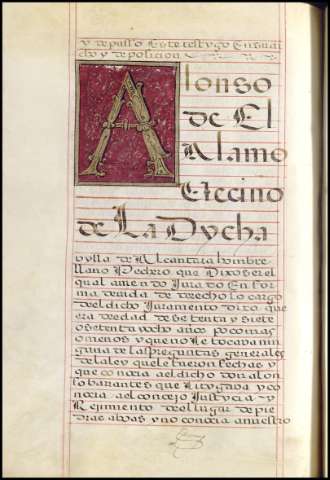 y depuso Este testygo En su di
cho y deposicion
Alonso
de El
Alamo
Vecino
de La Dycha
vylla de Alcantara hombre
llano Pechero que Dixo ser el
qual auiendo Jurado En for
ma deuida de derecho so cargo
del dicho Juramento dixo que
era de edad de setenta y siete
o setenta y ocho años poco mas
o menos y que no le tocava nin
guna de las preguntas generales
de la ley que le fueron fechas y
que conocia al dicho don alon
so barantes que Litygava y co
nocia al concejo Justycia y
Rejimiento del lugar de pie
dras alvas y no conocia a nuestro